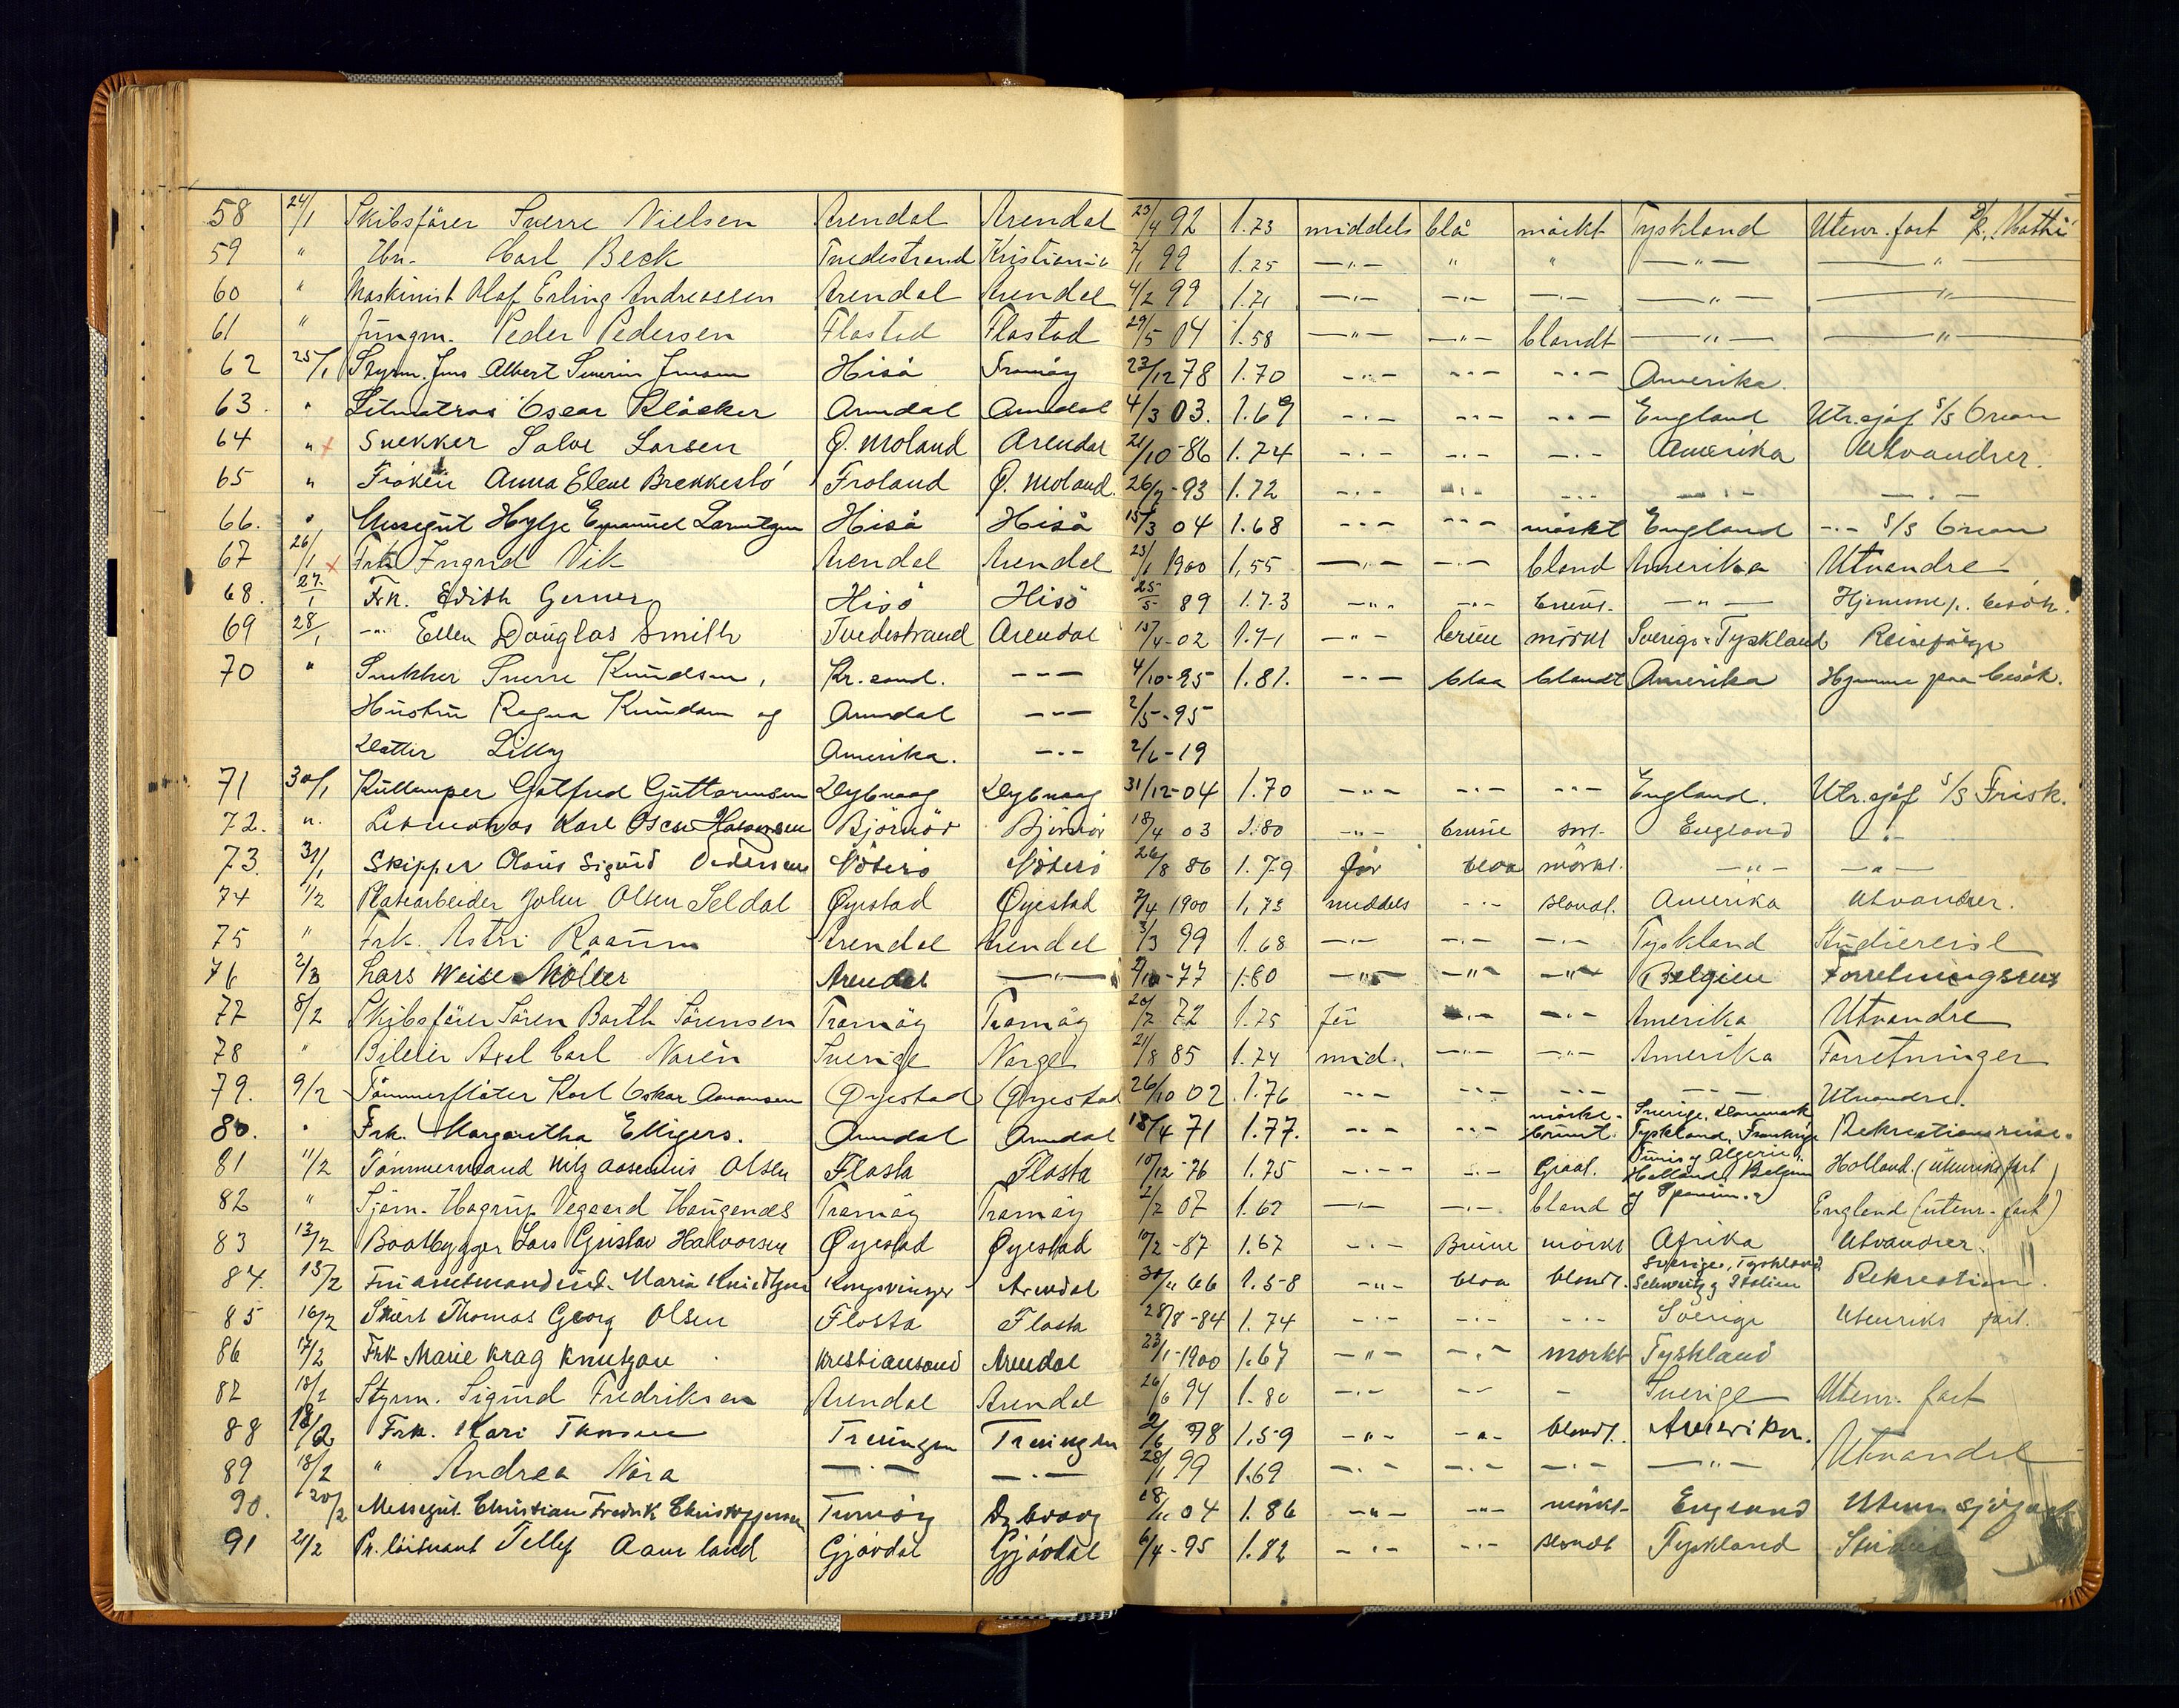 58 24/1 Skibsförer Sverre Nielsen Arendal Arendal 23/4 92 1.73 middels blå mörkt Tyskland Utenr. fart S/S. Mathi
59 " Carl Beck Tvedestrand Kristiania 99 1.75 —"— " " —"— —"—
60 " Maskinist Olaf Erling Andreassen Arendal Arendal 4/2 99 1.71 —"— —"— —"— —"— —"—
61 " Jungm. Peder Pedersen Flostad Flostad 29/5 04 1.58 —"— —"— blondt —"— —"—
62 25/1 Styrm. Jens Albert Severin Jensen Hisö Tromöy 23/12 78 1.70 —"— —"— —"— Amerika.
63. " Letmatros Oscar Klöcker Arendal Arendal 4/3 03. 1.69 —"— —"— —"— England Utr. sjöf S/S Orion
64 " Snekker Salve Larsen Ö. Moland Arendal 21/10-86 1.74 —"— —"— —"— Amerika Utvandrer.
65 " Fröken Anna Elene Brekkestö Froland Ö. Moland. 26/7-93 1.72 —"— —"— —"— —"— —"—
66. " Messegut Emanuel Hisö Hisö 15/3 04 1.68 —"— —"— mörkt England —"— S/S Orion
67 26/1 Frk. Ingrid Vik Arendal Arendal 23/1 1900 1,55 —"— —"— blond Amerika Utvandre
68. 27/1 Frk. Edith Gerner Hisö Hisö 25/5 89 1.73 —"— —"— brunt. —"— Hjemme p. besök.
69 28/1 —"— Ellen Douglas Smith Tvedestrand Arendal 15/4-02 1.71 —"— brune mörkt Sverige-Tyskland
70 " Snekker Sverre Knudsen, Kr.sand. —"— 4/10-95 1.81. —"— blaa blondt Amerika Hjemme paa besök.
Hustru Ragna Knudsen og Arendal —"— 2/5-95
Datter Lilly Amerika. —"— 2/6-19
71 30/1 Kullemper Gotfred Guttormsen Dybvaag Dybvaag 31/12-04 1.70 —"— —"— —"— England. Utr. sjöf S/S Frisk.
72. ". Letmatros Karl Oscar Halvorsen Björnör Björnör 18/4 03 1.80 —"— brune sort England —"—
73. 31/1 Skipper Olaus Sigurd Pedersen Nöterö Nöterö 26/8 86 1.79 för blaa mörkt. —"— —"—
74 1/2 Platearbeider John Olsen Seldal Öyestad Öyestad 7/4 1900 1,73 middels —"— blondt. Amerika Utvandrer.
75 " Frk. Astri Raaum Arendal Arendal 3/3 99 1.68 —"— —"— —"— Tyskland Studiereise
76 2/2 Lars Weise Möller Arendal —"— -77 1.80 —"— —"— —"— Belgien Forretningsreis
77 8/2 Skibsförer Sören Barth Sörensen Tromöy Tromöy 20/7 72 1.75 för —"— —"— Amerika Utvandre
78 " Bileier Axel Carl Norén Sverige Norge 21/8 85 1.74 mid. —"— —"— Amerika Forretninger
79. 9/2 Tömmerflöter Karl Oskar Aanonsen Öyestad Öyestad 26/10 02 1.76 —"— —"— —"— —"— Utvandre.
80. " Frk. Margaretha Elligers. Arendal Arendal 18/4 71 1.77. —"— —"— mörke- brunt. Sverige, Danmark Tyskland, Frankrige Tunis og Algerie. Holland, Belgien og Spanien. Rekreationsreise.
81 11/2 Tömmermand Nils Aasemius Olsen Flosta Flosta 10/12-76 1.75 —"— —"— Graat. Holland. (utenriksfart)
82 " Sjöm. Hagrup Vegaard Haugenes Tromöy Tromöy 2/2 07 1.62 —"— —"— blond England (utenr. fart)
83 13/2 Baatbygger Lars Gustav Halvorsen Öyestad Öyestad 10/2-87 1.67 —"— Brune mörkt Afrika Utvandrer.
84. 15/2 Fru Maria Knudtzon Kongsvinger Arendal 30/11 66 1.58 —"— blaa blondt. Sverige, Tyskland Schweitz og Italien Rekreation.
85 16/2 Stuert Thomas Georg Olsen Flosta Flosta 28/8-84 1.74 —"— —"— —"— Sverige Utenriks fart.
86 17/2 Frk Marie Krag Knutzon Kristiansand Arendal 23/1-1900 1.67 —"— —"— mörkt Tyskland
87 18/2 Styrm. Sigurd Fredriksen Arendal Arendal 26/6 94 1.80 —"— —"— - Sverige Utenr. fart
88 18/2 Frk. Kari Treungen Treungen 2/6 78 1,59 —"— —"— blondt. Amerika. Utvandre
89 18/2 " Andrea Nora —"— —"— 28/1 99 1.69 —"— —"— —"— —"—
90. 20/2 Messegut. Christian Fredrik Christoffersen Tromöy Dybvaag 18/11 04 1.86 —"— —"— mörkt- England Utenr. sjöfart
91 21/2 Pr. löitnant Tellef Aamland Gjövdal Gjövdal 6/4-95 1.82 —"— —"— blondt Tyskland Studie